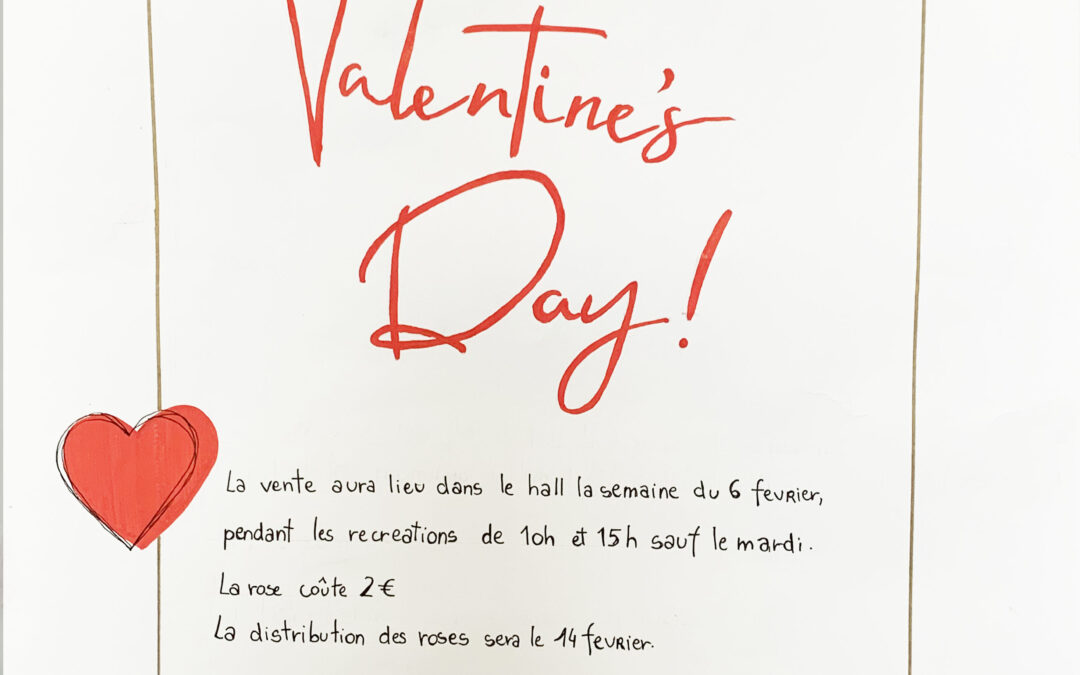 Valentine's
Day!
La vente aura lieu dans le hall la semaine du 6 fevrier,
pendant les recreations de 10h et 15h sauf le mardi.
La rose coûte 2€
La distribution des roses sera le 14 fevrier.